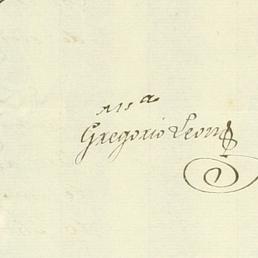 Gregorio Leon